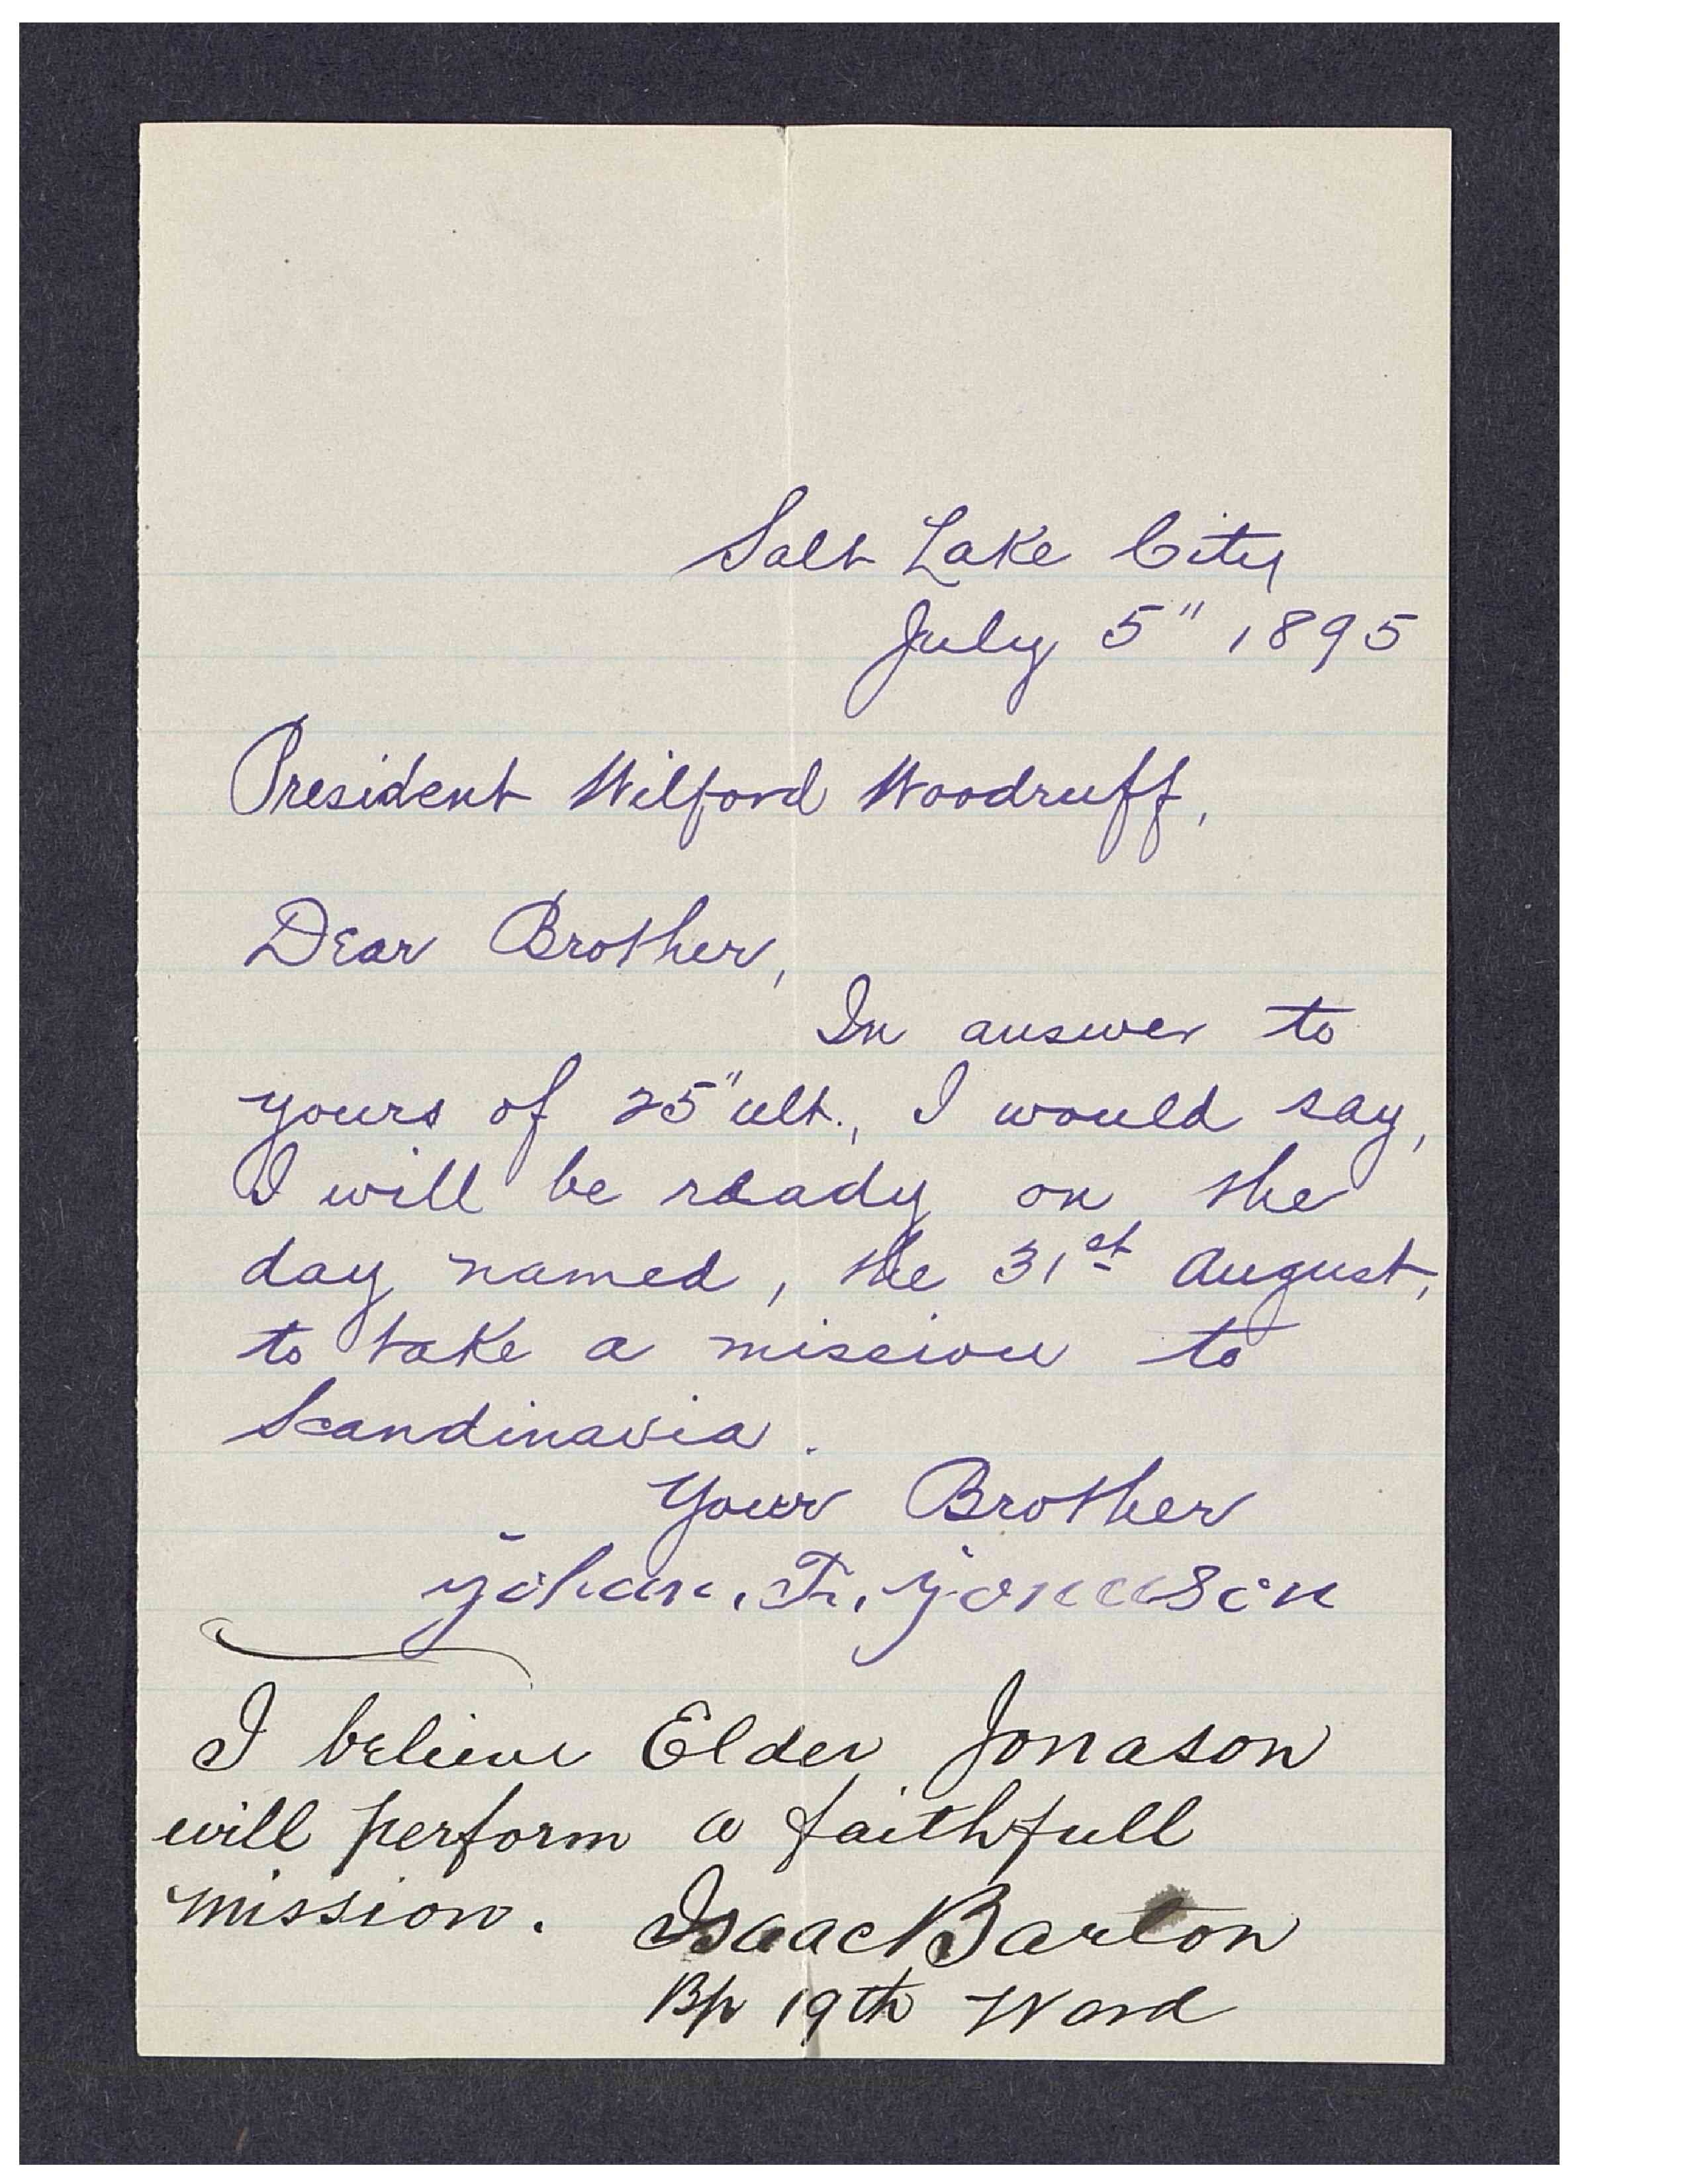 Salt Lake City
July 5" 1895
President Wilford Woodruff,
Dear Brother,
In answer to
yours of 25" ult., I would say,
I will be ready on the
day named, the 31st August,
to take a mission to
Scandinavia.
Your Brother
Johan. F. Jonason
I believe Elder Jonason
will perform a faithfull
mission. Isaac Barton
Bp 19th Ward